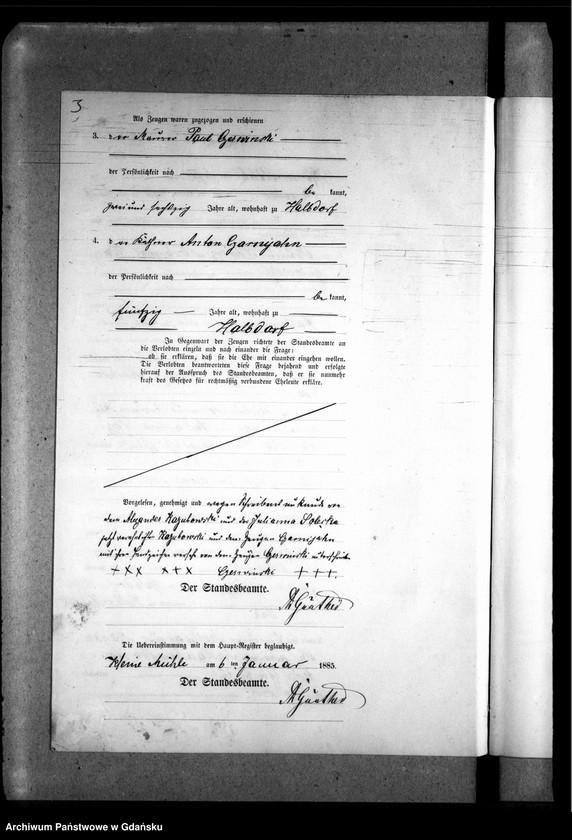 3
Als Zeugen waren zugezogen und erschienen
3. der Maurer Paul Czerwinski
der Persönlichkeit nach
be kannt,
zwei und sechszig Jahre alt, wohnhaft zu Halbdorf
4. der Käthner Anton Czarnijahn
der Persönlichkeit nach
be kannt,
fünfzig Jahre alt, wohnhaft zu
Halbdorf
In Gegenwart der Zeugen richtete der Standesbeamte an
die Verlobten einzeln und nach einander die Frage:
ob sie erklären, daß sie die Ehe mit einander eingehen wollen.
Die Verlobten beantworteten diese Frage bejahend und erfolgte
hierauf der Ausspruch des Standesbeamten, daß er sie nunmehr
kraft des Gesetzes für rechtmäßig verbundene Eheleute erkläre.
Vorgelesen, genehmigt und wegen Schreibens unkunde von
dem Alexander und der Julianna
jetzt verehelichte und dem Zeugen Czarnijahn
mit ihren Handzeichen versehn von dem Zeugen Czerwinski unterschrieben
+ x x x + x Czerwinski + + +.
Der Standesbeamte.
Günther
Die Uebereinstimmung mit dem Haupt-Register beglaubigt.
Kleine Mühle am 6 ten Januar 1885.
Der Standesbeamte.
Günther
Archiwum Państwowe w Gdańsku